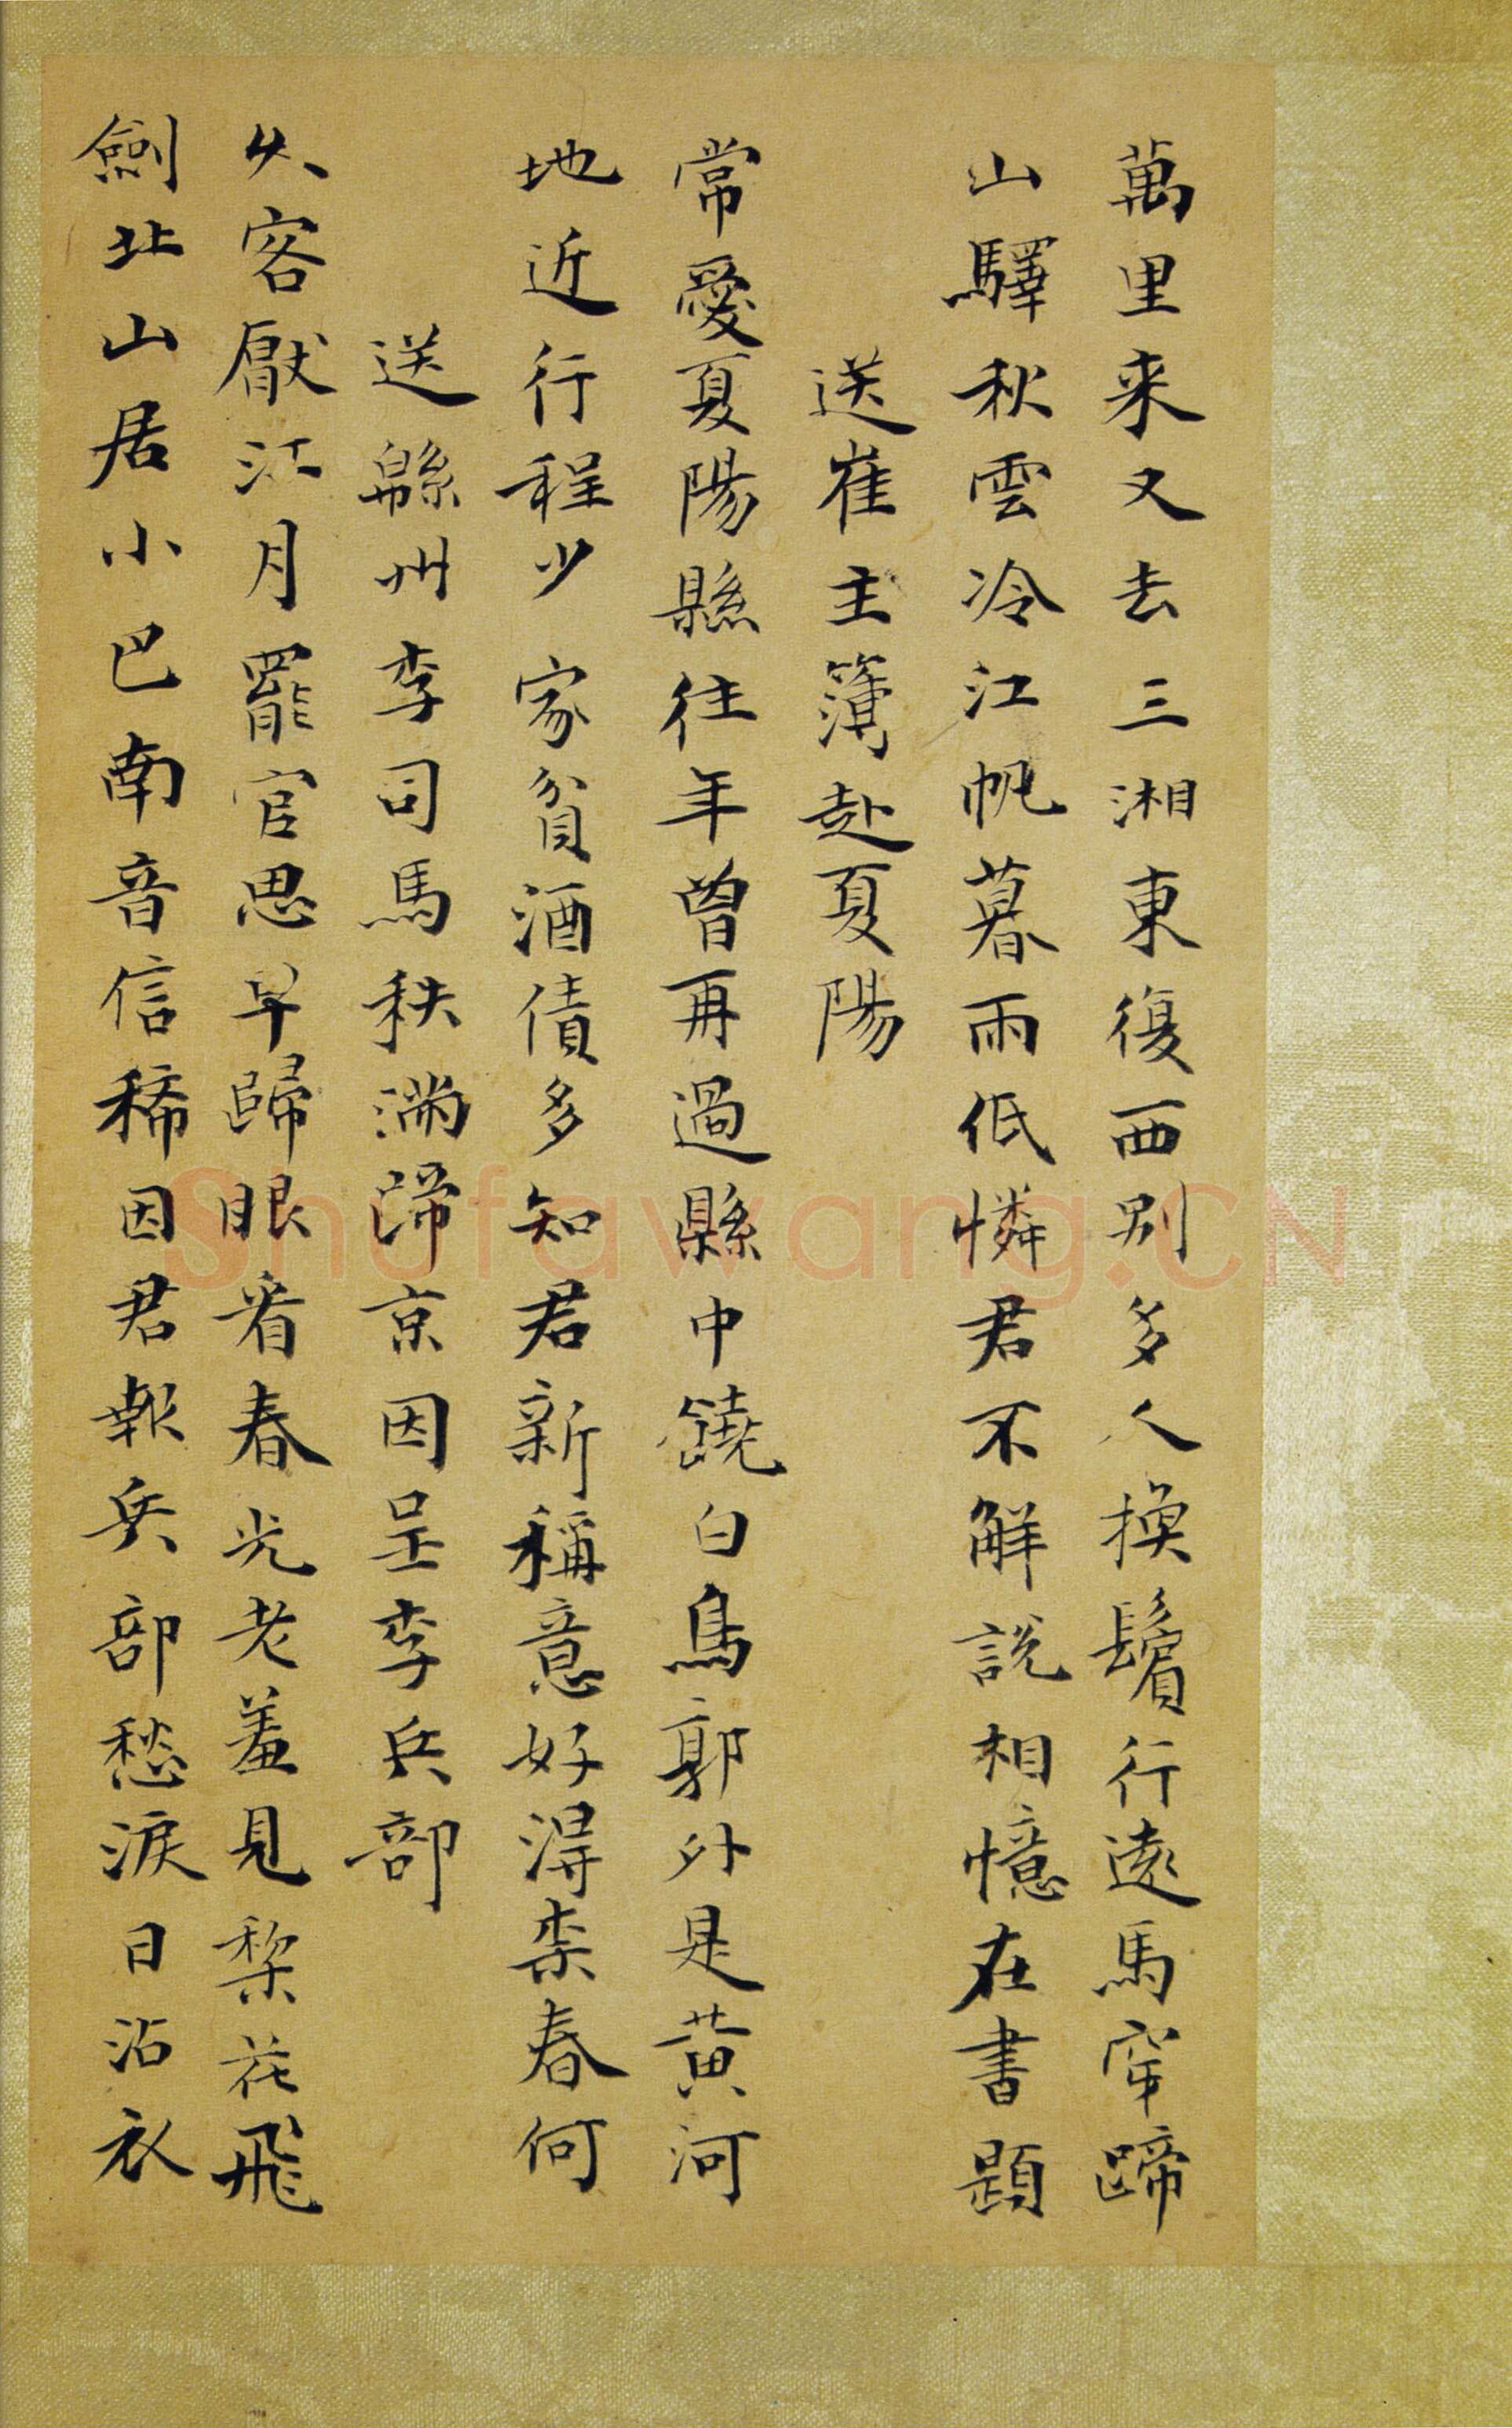 萬里来又去三湘東復西別多人換鬢行遠馬穿蹄
山驛秋雲冷江帆暮雨低憐君不解說相憶在書題
送崔主簿赴夏陽
常愛夏陽縣往年曾再過縣中饒白鳥郭外是黃河
地近行程少家貧酒債多知君新稱意好得柰春何
送緜州李司馬秩満歸京因呈李兵部
久客厭江月罷官思早歸眼看春光老羞見棃花飛
劍北山居小巴南音信稀因君報兵部愁淚日沾衣
Shufawang.CN